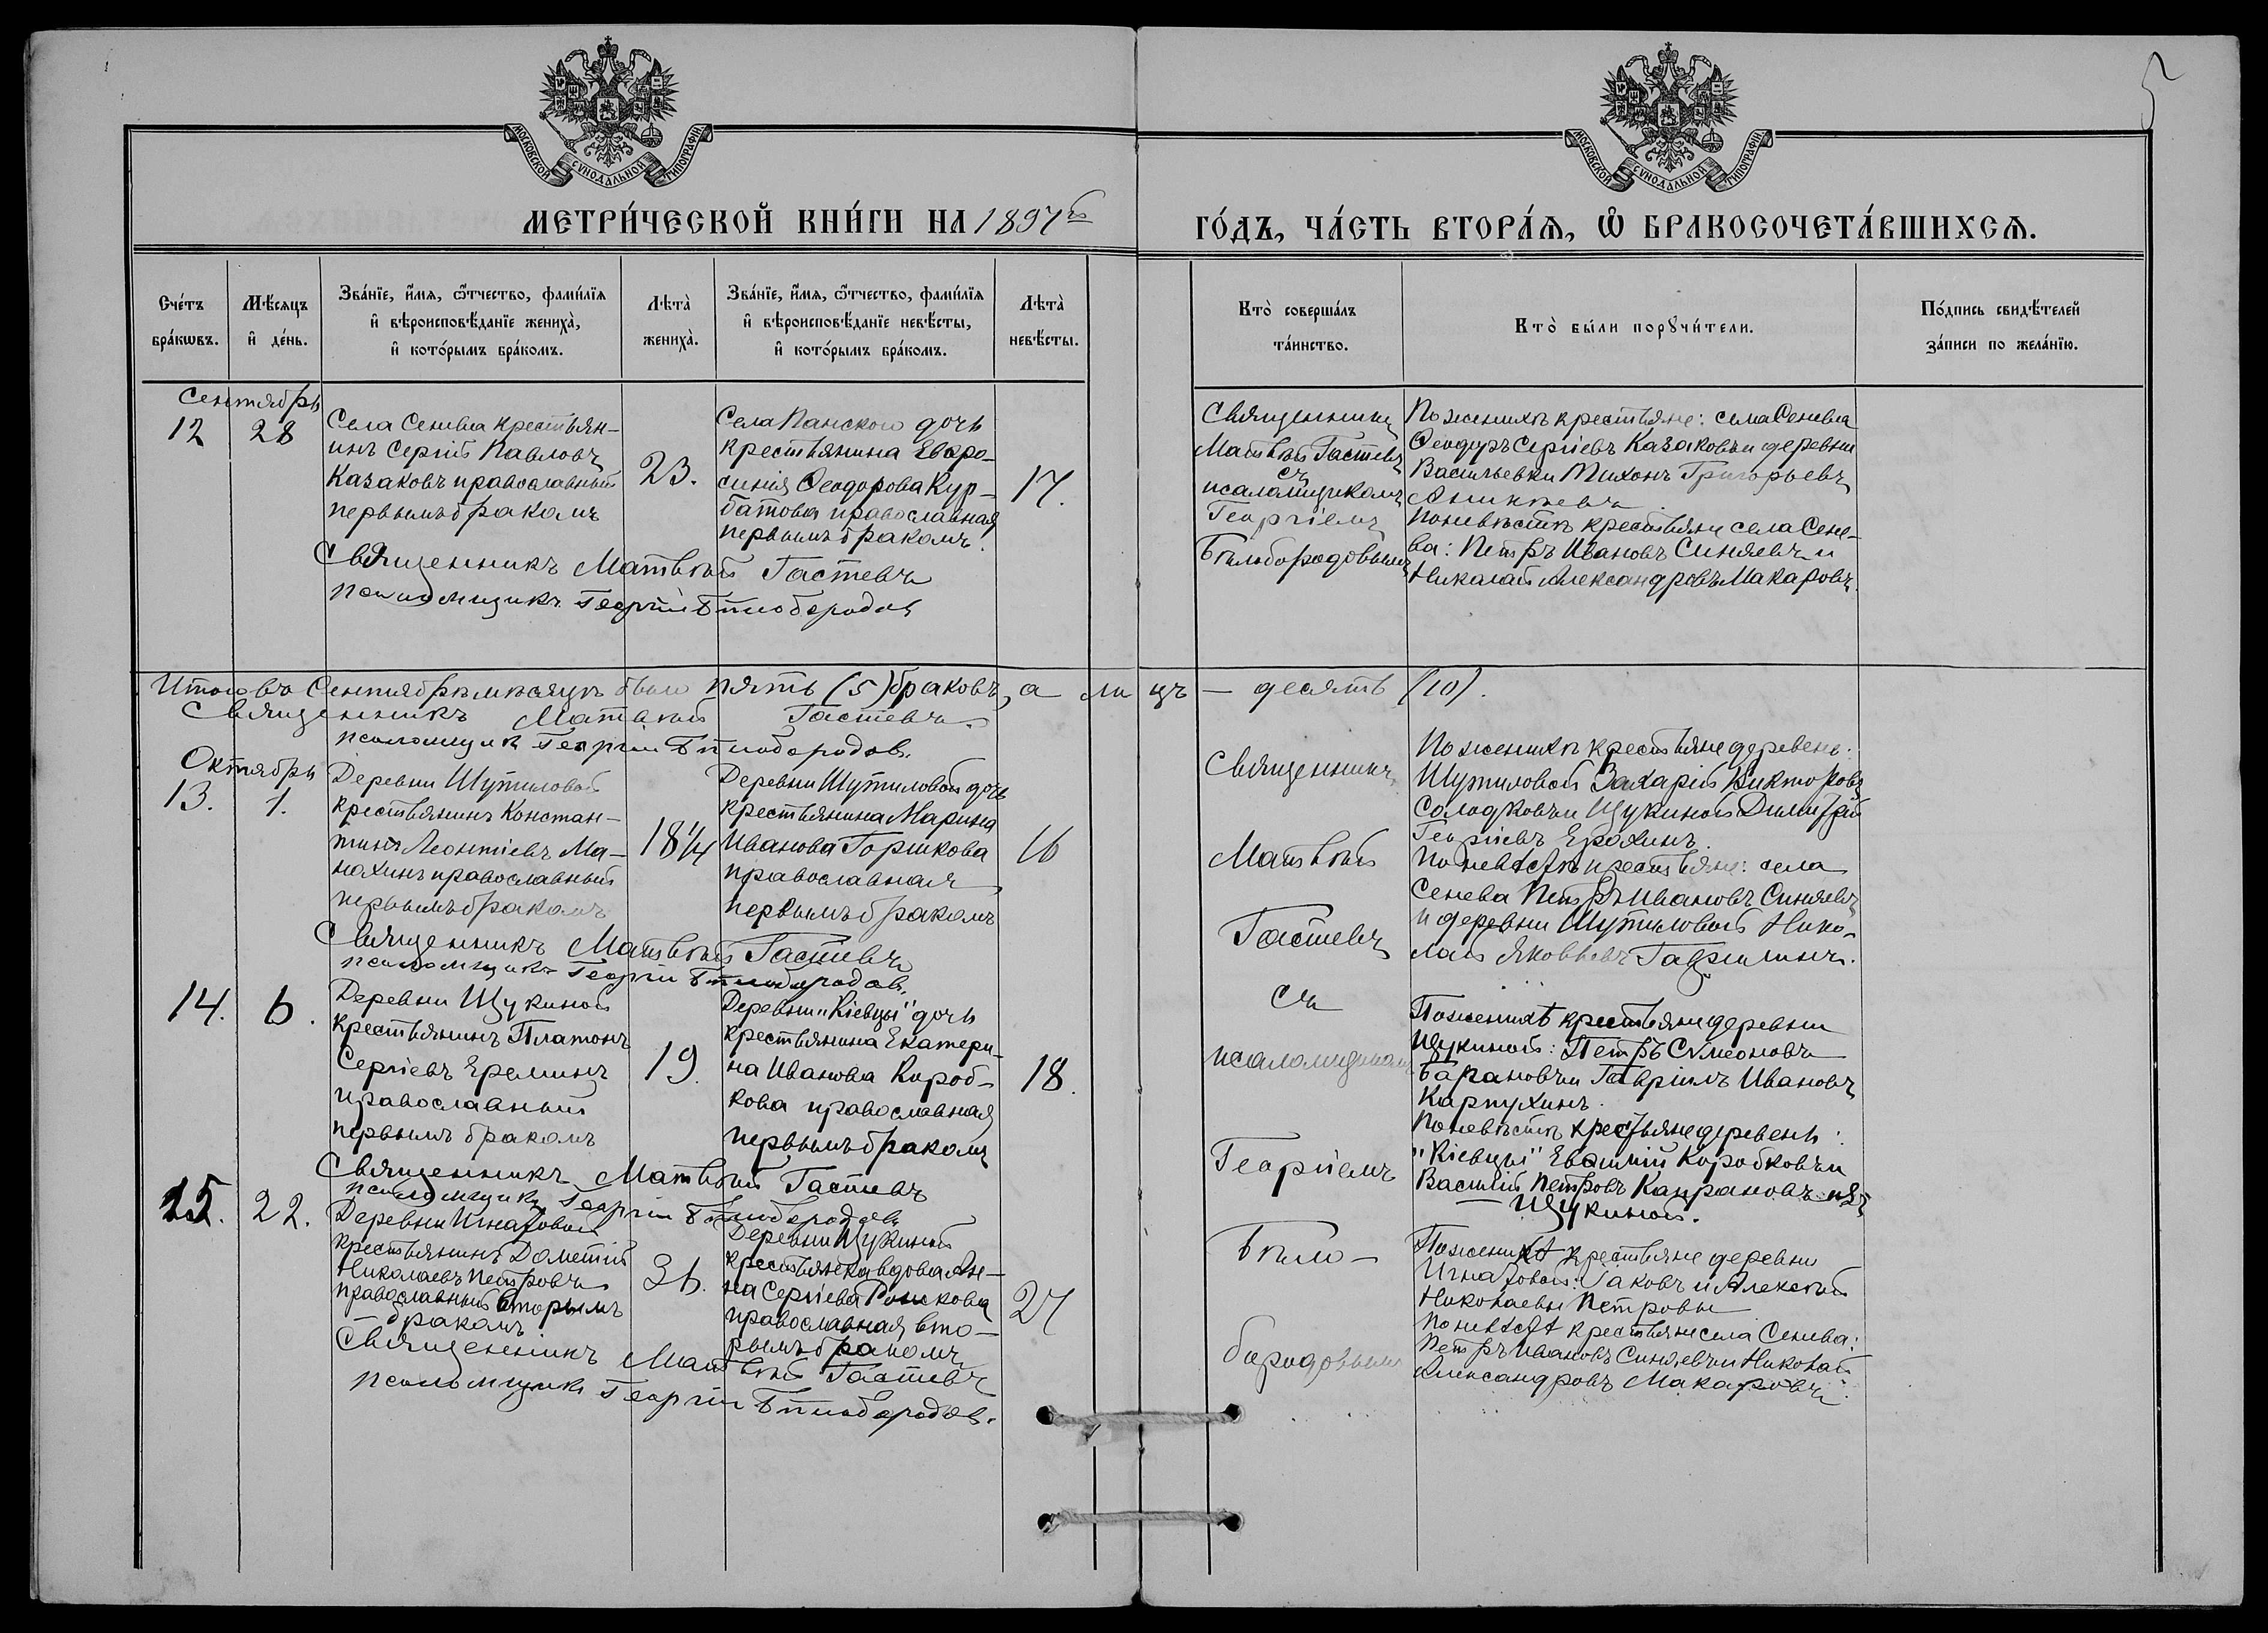 5
МОСКОВСКОЙ СѴНОДАЛЬНОЙ ТИПОГРАФІИ
МОСКОВСКОЙ СѴНОДАЛЬНОЙ ТИПОГРАФІИ
МЕТРИ́ЧЕСКОЙ КНИ́ГИ НА 1897й
ГО́ДЪ, ЧА́СТЬ ВТОРА́Ѧ, Ѽ БРАКОСОЧЕТА́ВШИХСѦ.
Сче́тъ
бра́кѡвъ.
Мѣ́сѧцъ
и҆ де́нь.
Зва́нїе, и҆́мѧ, ѻ҆́тчество, фами́лїѧ
и҆ вѣроисповѣ́данїе жениха̀,
и҆ кото́рымъ бра́комъ.
Лѣта̀
жениха̀.
Зва́нїе, и҆́мѧ, ѻ҆́тчество, фами́лїѧ
и҆ вѣроисповѣ́данїе невѣ́сты,
и҆ кото́рымъ бра́комъ.
Лѣта̀
невѣ́сты.
Кто̀ соверша́лъ
та́инство.
Кто̀ бы́ли порꙋчи́тели.
По́дпись свидѣ́телей
за́писи по жела́нїю.
Сентябрь
12
28
Села Сенева крестьян-
инъ Сергій Павловъ
Казаковъ православный
первымъ бракомъ
23.
Села Панского дочь
крестьянина Евфро-
синія Ѳеодорова Кур-
батова православная
первымъ бракомъ.
17.
Священникъ
Матвѣй Гастевъ
съ
псаломщикомъ
Георгіемъ
Бѣлобородовымъ
По женихѣ крестьяне: села Сенева
Ѳеодоръ Сергіевъ Казаковъ и деревни
Васильевки Тихонъ Григорьевъ
По невѣстѣ крестьяне села Сене-
ва: Петръ Ивановъ Синяевъ и
Николай Александровъ Макаровъ.
Священникъ Матвѣй Гастевъ
псаломщикъ Георгій Бѣлобородов
Итого въ Сентябрѣ мѣсяцѣ было пять (5) браковъ, а лицъ — десять (10).
Священникъ Матвѣй Гастевъ.
псаломщикъ Георгій Бѣлобородов.
Октябрь
13.
1.
Деревни Шутиловой
крестьянинъ Констан-
тинъ Леонтіевъ Ма-
нохинъ православный
первымъ бракомъ
18 1/4
Деревни Шутиловой дочь
крестьянина Марина
Иванова Горшкова
православная
первымъ бракомъ
16
Священникъ
Матвѣй
Гастевъ
съ
псаломщикомъ
Георгіемъ
Бѣло-
бородовымъ
По женихѣ крестьяне деревень:
Шутиловой Захарій Викторовъ
Солодковъ и Щукиной Димитрій
Георгіевъ Ерохинъ.
По невѣстѣ крестьяне: села
Сенева Петръ Ивановъ Синяевъ
и деревни Шутиловой Нико-
лай Яковлевъ Гаврилинъ.
Священникъ Матвѣй Гастевъ
псаломщикъ Георгій Бѣлобородов.
14.
6.
Деревни Щукиной
крестьянинъ Платонъ
Сергіевъ Ереминъ
православный
первымъ бракомъ
19.
Деревни „Кіевцы" дочь
крестьянина Екатери-
на Иванова Короб-
кова православная
первымъ бракомъ
18.
По женихѣ крестьяне деревни
Щукиной: Петръ Сѵмеоновъ
Барановъ и Гавріилъ Ивановъ
Карпухинъ.
По невѣстѣ крестьяне деревень:
"Кіевцы" Евѳимій Коробковъ и
Василій Петровъ Капрановъ изъ
— Щукиной.
Священникъ Матвѣй Гастевъ
псаломщикъ Георгій Бѣлобородовъ
15.
22.
Деревни Игнатовой
крестьянинъ Дометій
Николаевъ Петровъ
православный вторымъ
бракомъ
36.
Деревни Щукиной
крестьянка вдова Ан-
на Сергіева
православная вто-
рымъ бракомъ
27
По женихѣ крестьяне деревни
Игнатовой: Іаковъ и Алексѣй
Николаевы Петровы
По невѣстѣ крестьяне села Сенева:
Петръ Ивановъ Синяевъ и Николай
Александровъ Макаровъ.
Священникъ Матвѣй Гастевъ
псаломщикъ Георгій Бѣлобородов.